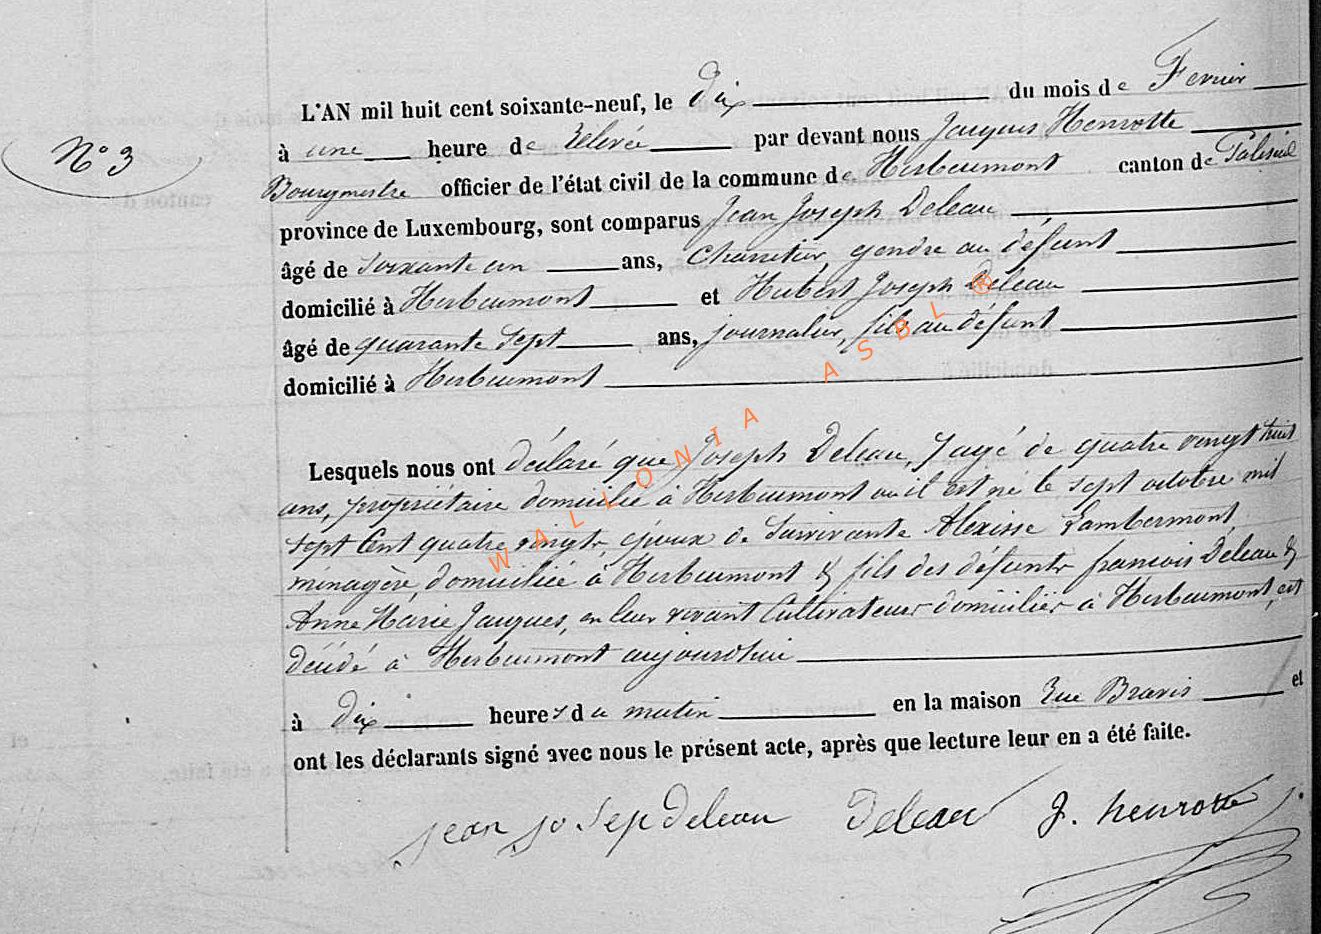 N° 3
L'AN mil huit cent soixante-neuf, le dix du mois de Fevrier
à une heure de relevée par devant nous Jacques Henrotte
Bourgmestre officier de l'état civil de la commune de Herbeumont canton de Paliseul
province de Luxembourg, sont comparus Jean Joseph Deleau,
âgé de soixante un ans, Charretier, gendre au défunt
domicilié à Herbeumont et Hubert Joseph Deleau
âgé de quarante sept ans, journalier, fils au défunt
domicilié à Herbeumont
Lesquels nous ont déclaré que Joseph Deleau, agé de quatre vingt huit
ans, propriétaire domicilié à Herbeumont où il est né le sept octobre mil
sept Cent quatre vingts, époux de Survivante Alexisse Lambermont,
ménagère, domiciliée à Herbeumont & fils des défunts francois Deleau &
Anne Marie Jacques, en leur vivant Cultivateurs domiciliés à Herbeumont, est
décédé à Herbeumont aujourdhui
à dix heures du matin en la maison Rue Bravis et
ont les déclarants signé avec nous le présent acte, après que lecture leur en a été faite.
jean josep Deleau Deleau J. henrotte
WALLONIA ASBL ®